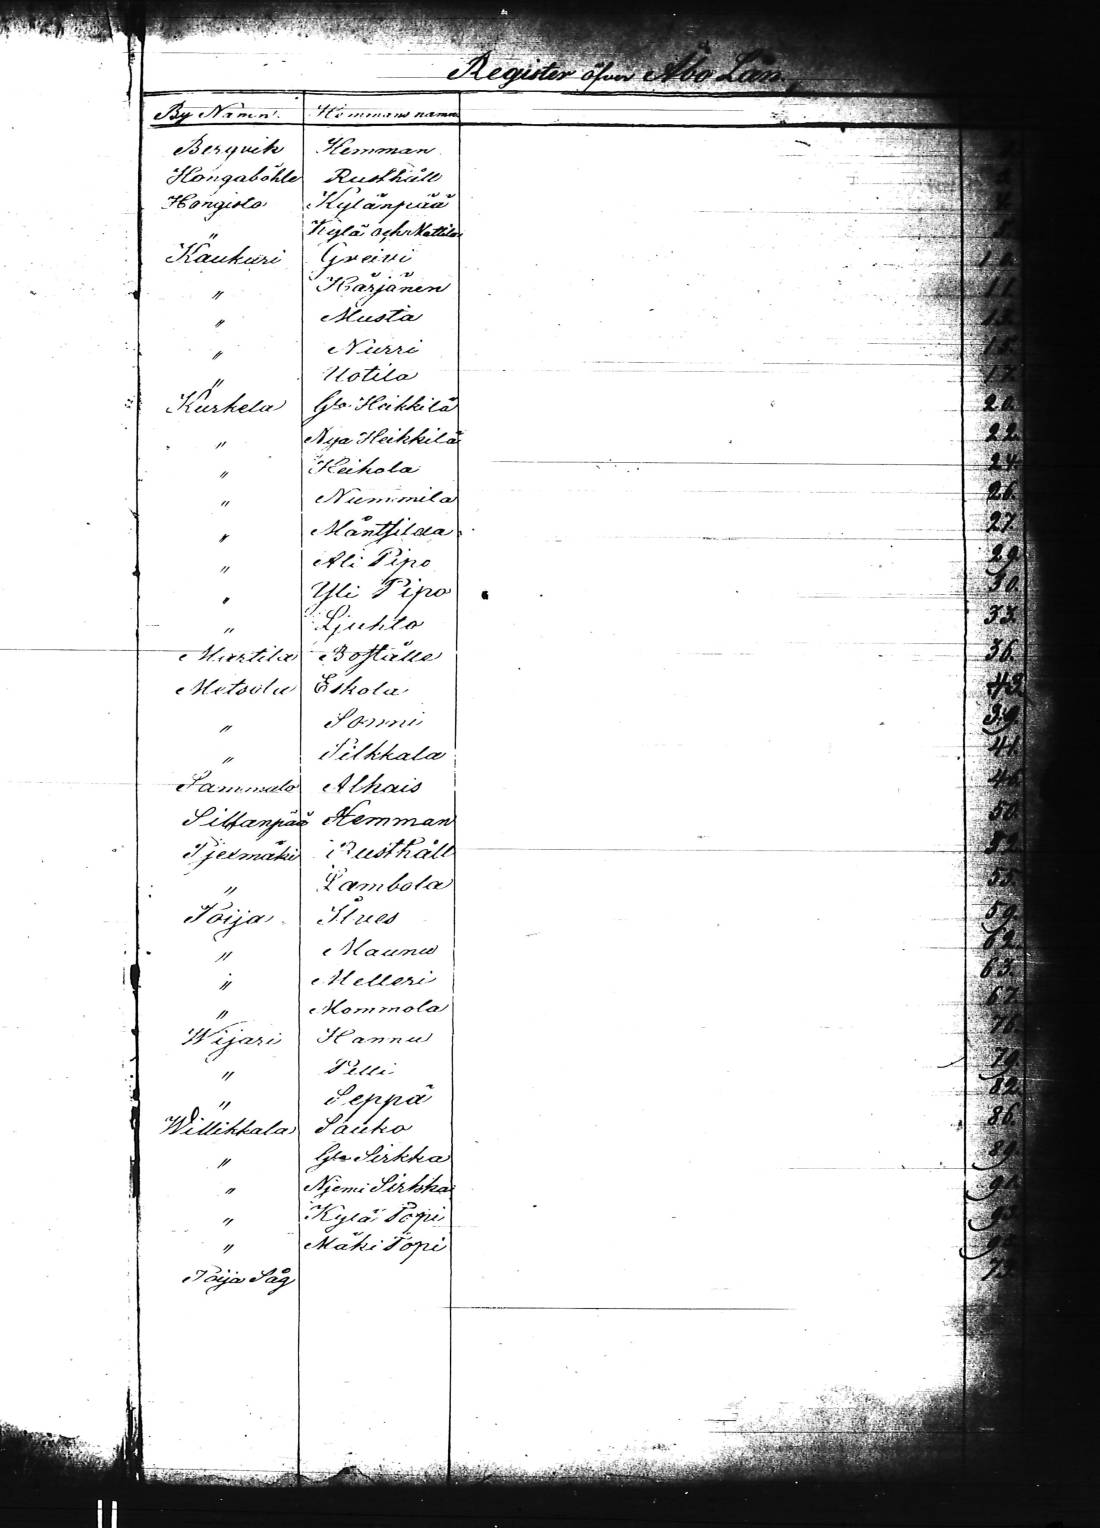 Register öfver Åbo Län.
By Namn. Hemmans namn
Bergvik Hemman 1.
Hongaböhle Rusthåll 2.
Hongisto Kylänpää 4.
" Kylä och Mattila 8.
Kaukuri Greivi 10.
" Härjänen 11.
" Musta 13.
" Nurri 15.
" Uotila 17.
Kurkela Gla Heikkilä 20.
" Nya Heikkilä 22.
" Keihola 24.
" Nummila 26.
" Mäntsilda 27.
" Ali Pipo 29.
" Yli Pipo 30.
" Ljuhto 33.
Martila Boställe 36.
Metsola Eskola 43
" Sonni 39.
" Pilkkala 41.
Sammalo Alhais 46.
Siltanpää Hemman 50.
Tjermäki Rusthåll 52.
" Lambola 55.
Toija Ilves 59.
" Maunu 62.
" Melleri 63.
" Mommola 67.
Wijari Hannu 76.
" Pelli 79.
" Seppä 82.
Willikkala Sauko 86.
" Gla Sirkka 89.
" Njemi Sirkka 91.
" Kylä Topi 93.
" Mäki Topi 95.
Toija Såg 73.